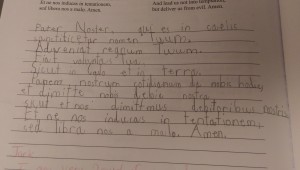 Et ne nos inducas in tentationem,
sed libera nos a malo. Amen.
And lead us not into temptation,
but deliver us from evil. Amen.
Pater Noster, qui es in coelis
sanctificetur nomen tuum.
Adveniat regnum tuum.
Fiat voluntas tua
Sicut in et in terra.
Panem nostrum da nobis hodie
et dimitte nobis debita nostra
sicut et nos dimittimus debitoribus nostris
Et ne nos inducas in tentationem,
sed libra nos a malo. Amen.